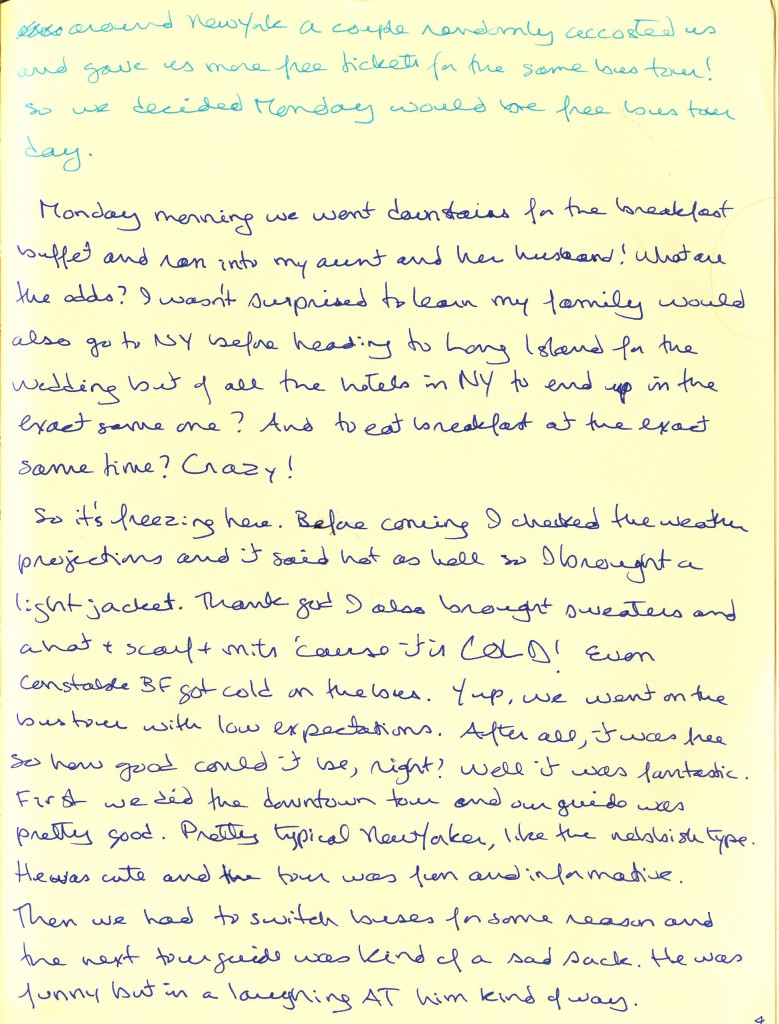 around New York a couple randomly accosted us
and gave us more free tickets for the same bus tour!
So we decided Monday would be free bus tour
day.
Monday morning we went downstairs for the breakfast
buffet and ran into my aunt and her husband! What are
the odds? I wasn't surprised to learn my family would
also go to NY before heading to Long Island for the
wedding but of all the hotels in NY to end up in the
exact same one? And to eat breakfast at the exact
same time? Crazy!
So it's freezing here. Before coming I checked the weather
projections and it said hot as hell so I brought a
light jacket. Thank god I also brought sweaters and
a hat + scarf + mits 'cause it is COLD! Even
Constable BF got cold on the bus. Yup, we went on the
bus tour with low expectations. After all, it was free
so how good could it be, right? Well it was fantastic.
First we did the downtown tour and our guide was
pretty good. Pretty typical New Yorker, like the nebbish type.
He was cute and the tour was fun and informative.
Then we had to switch buses for some reason and
the next tour guide was kind of a sad sack. He was
funny but in a laughing AT him kind of way.